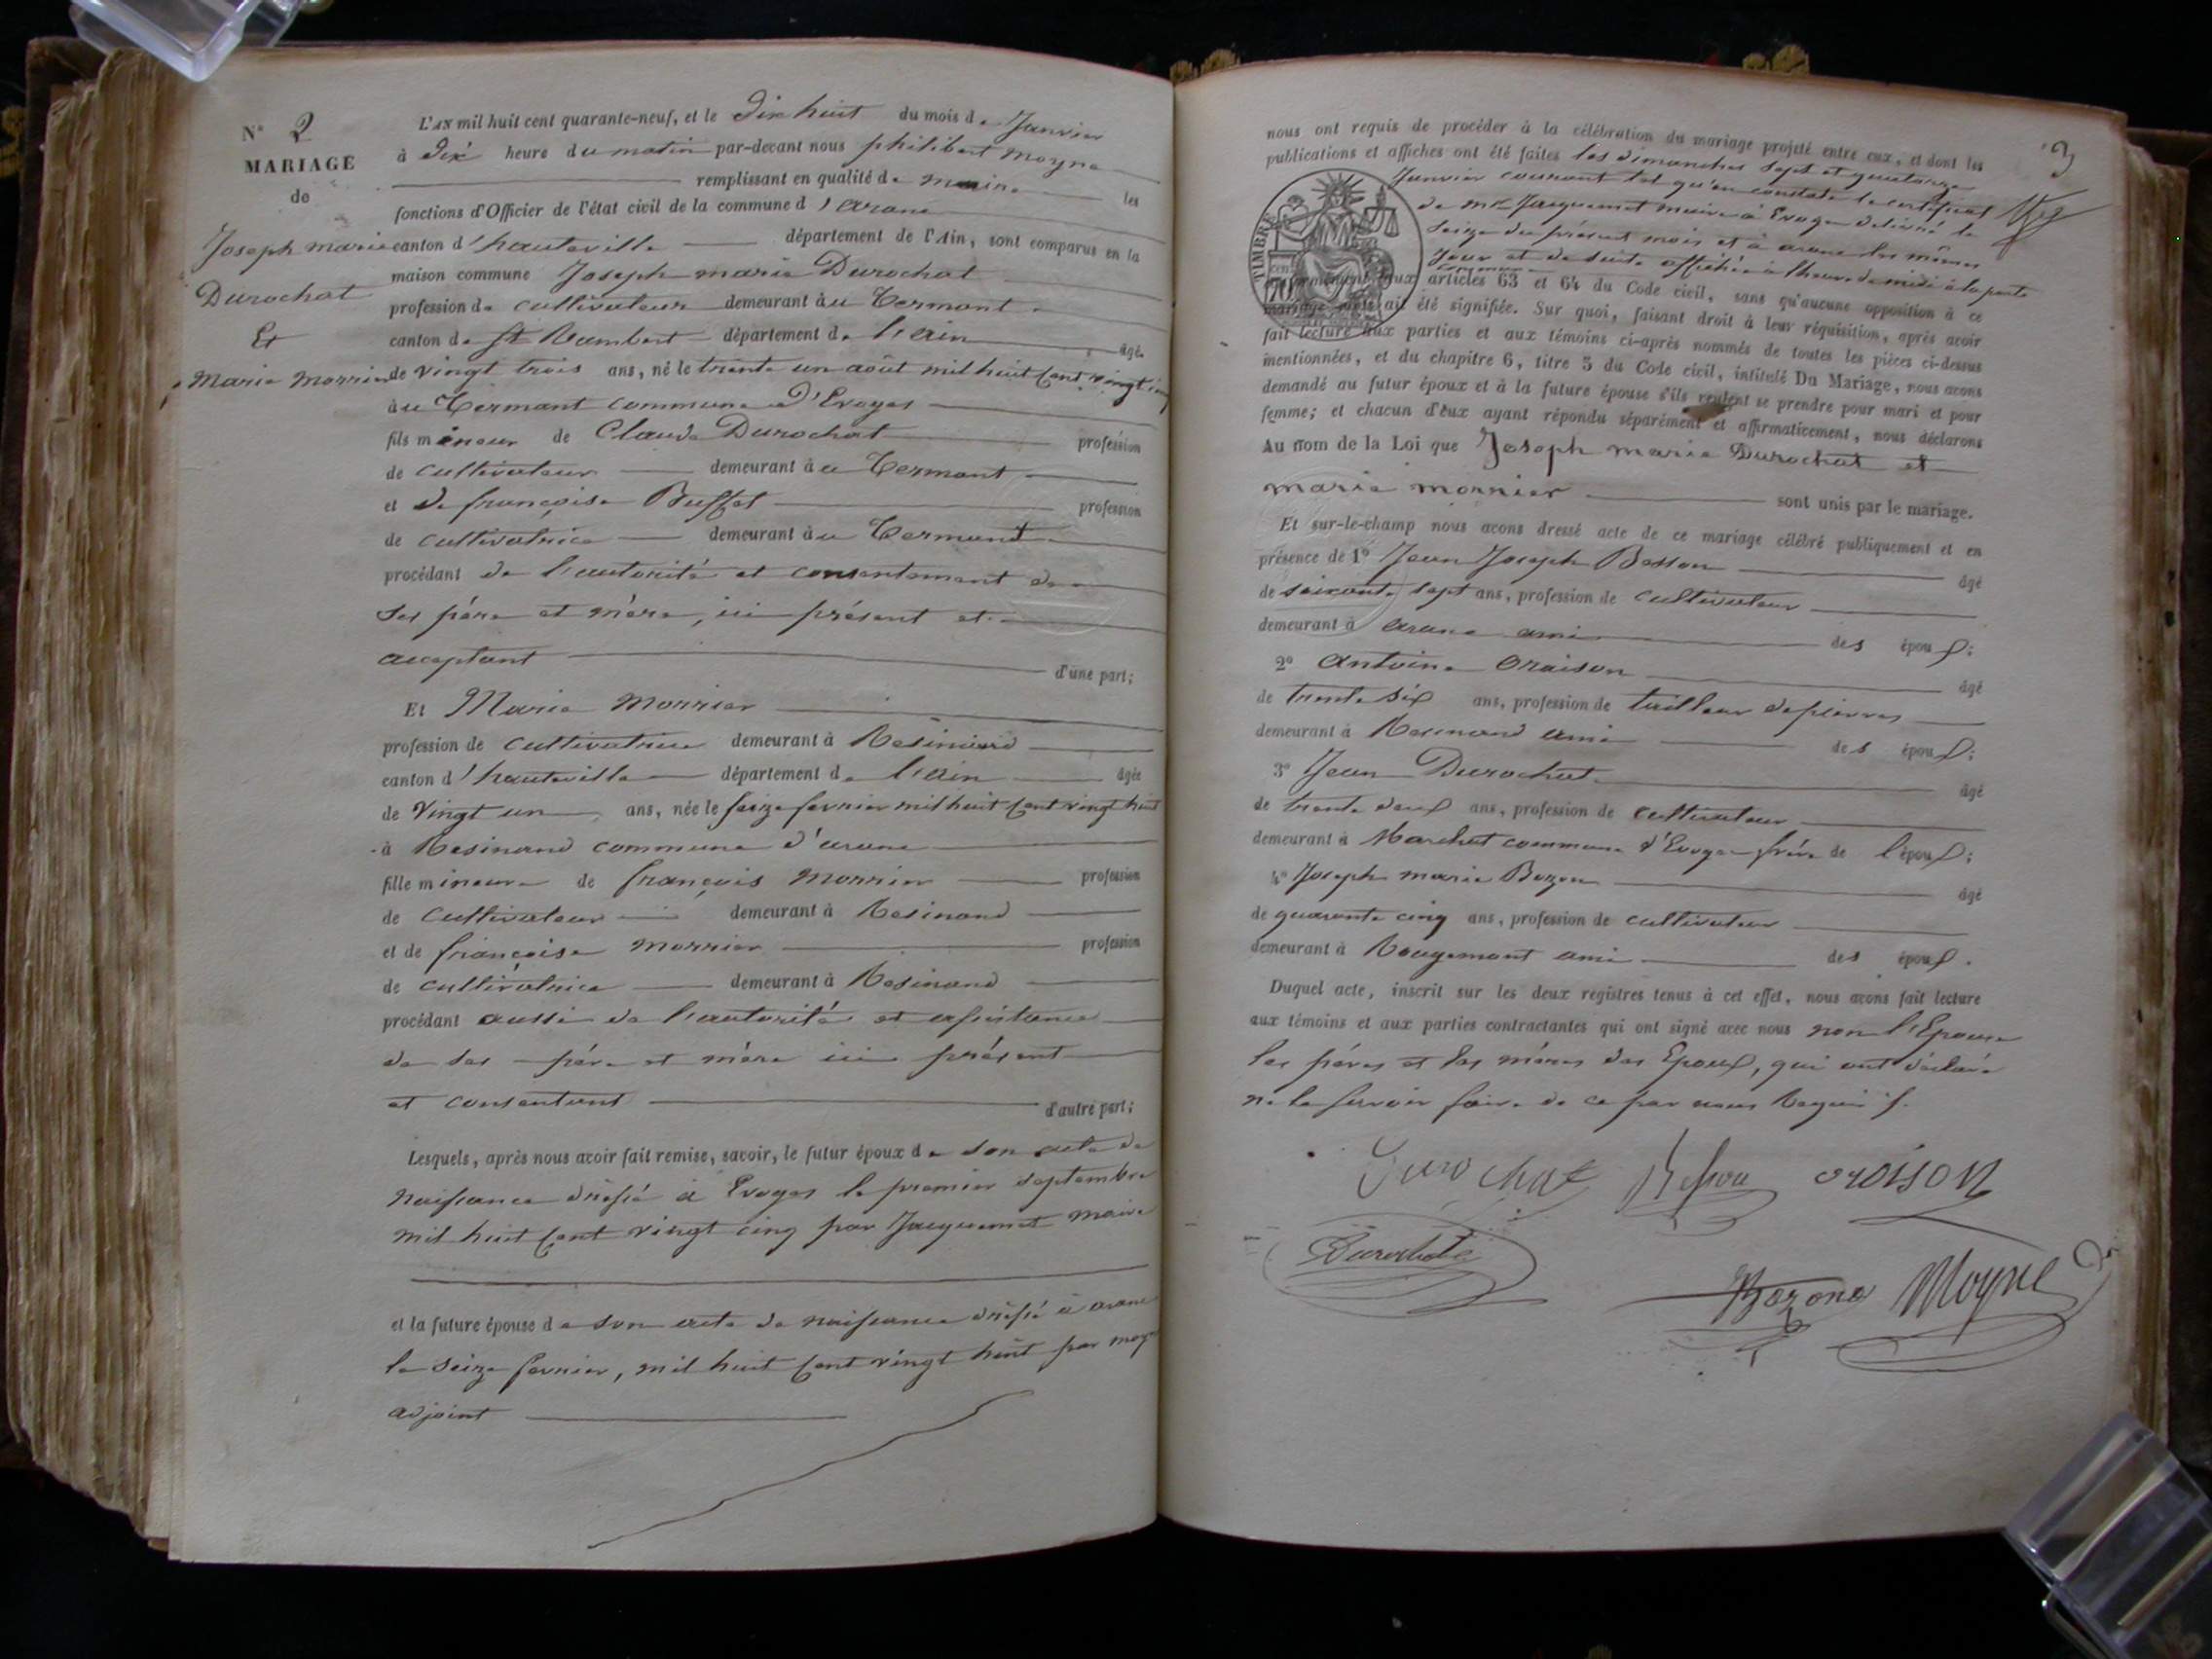 N° 2
MARIAGE
de
Joseph marie
Durochat
Et
Marie Monnier
L'AN mil huit cent quarante-neuf, et le Dix huit du mois de Janvier
à Dix heure du matin par-devant nous philibert Moyne
remplissant en qualité de maire les
fonctions d'Officier de l'état civil de la commune d'arane
canton d'hauteville département de l'Ain, sont comparus en la
maison commune Joseph marie Durochat
profession de cultivateur demeurant à au Termant
canton de St Rambert département de l'ain âgé
de vingt trois ans, né le trente un août mil huit cent vingt cinq
à au Termant commune d'Evoges
fils mineur de Claude Durochat profession
de cultivateur demeurant à au Termant
et de françoise Buffet profession
de cultivatrice demeurant à au Termant
procédant de l'autorité et consentement de
ses père et mère, ici présent et
acceptant d'une part;
Et Marie Monnier
profession de cultivatrice demeurant à Resinand
canton d'hauteville département de l'ain âgée
de Vingt un ans, née le seize fevrier mil huit cent vingt huit
à Resinand commune d'arane
fille mineure de françois Monnier profession
de cultivateur demeurant à Resinand
et de françoise Monnier profession
de cultivatrice demeurant à Resinand
procédant aussi de l'autorité et assistance
de ses père et mère ici présent
et consentant d'autre part;
Lesquels, après nous avoir fait remise, savoir, le futur époux de son acte de
naissance dressé à Evoges le premier septembre
mil huit cent vingt cinq par Jacquemet maire
et la future épouse de son acte de naissance dressé à arane
le seize fevrier, mil huit cent vingt huit par moyne
adjoint
3
nous ont requis de procéder à la célébration du mariage projeté entre eux, et dont les
publications et affiches ont été faites les dimanches sept et quatorze
Janvier courant tel qu'en constate le certificat
de mr Jacquemet maire à Evoges delivré le
seize du présent mois et à arane les mêmes
jour et de suite affichée à l'heure de midi à la porte
TIMBRE
conformément aux articles 63 et 64 du Code civil, sans qu'aucune opposition à ce
mariage nous ait été signifiée. Sur quoi, faisant droit à leur réquisition, après avoir
fait lecture aux parties et aux témoins ci-après nommés de toutes les pièces ci-dessus
mentionnées, et du chapitre 6, titre 5 du Code civil, intitulé Du Mariage, nous avons
demandé au futur époux et à la future épouse s'ils veulent se prendre pour mari et pour
femme; et chacun d'eux ayant répondu séparément et affirmativement, nous déclarons
Au nom de la Loi que Joseph marie Durochat et
marie monnier sont unis par le mariage.
Et sur-le-champ nous avons dressé acte de ce mariage célébré publiquement et en
présence de 1° Jean Joseph Besson âgé
de soixante sept ans, profession de cultivateur
demeurant à arane ami des époux;
2° Antoine Oraison âgé
de trente six ans, profession de tailleur de pierres
demeurant à Resinand ami des époux;
3° Jean Durochat âgé
de trente deux ans, profession de cultivateur
demeurant à Marchat commune d'Evoges frère de l'époux;
4° Joseph marie Bozon âgé
de quarante cinq ans, profession de cultivateur
demeurant à Rougemont ami des époux.
Duquel acte, inscrit sur les deux registres tenus à cet effet, nous avons fait lecture
aux témoins et aux parties contractantes qui ont signé avec nous non l'Epouse
les pères et les mères des Epoux, qui ont déclaré
ne le savoir faire de ce par nous Requis.
Durochat Besson oroison
Durochat
Bozono Moyne